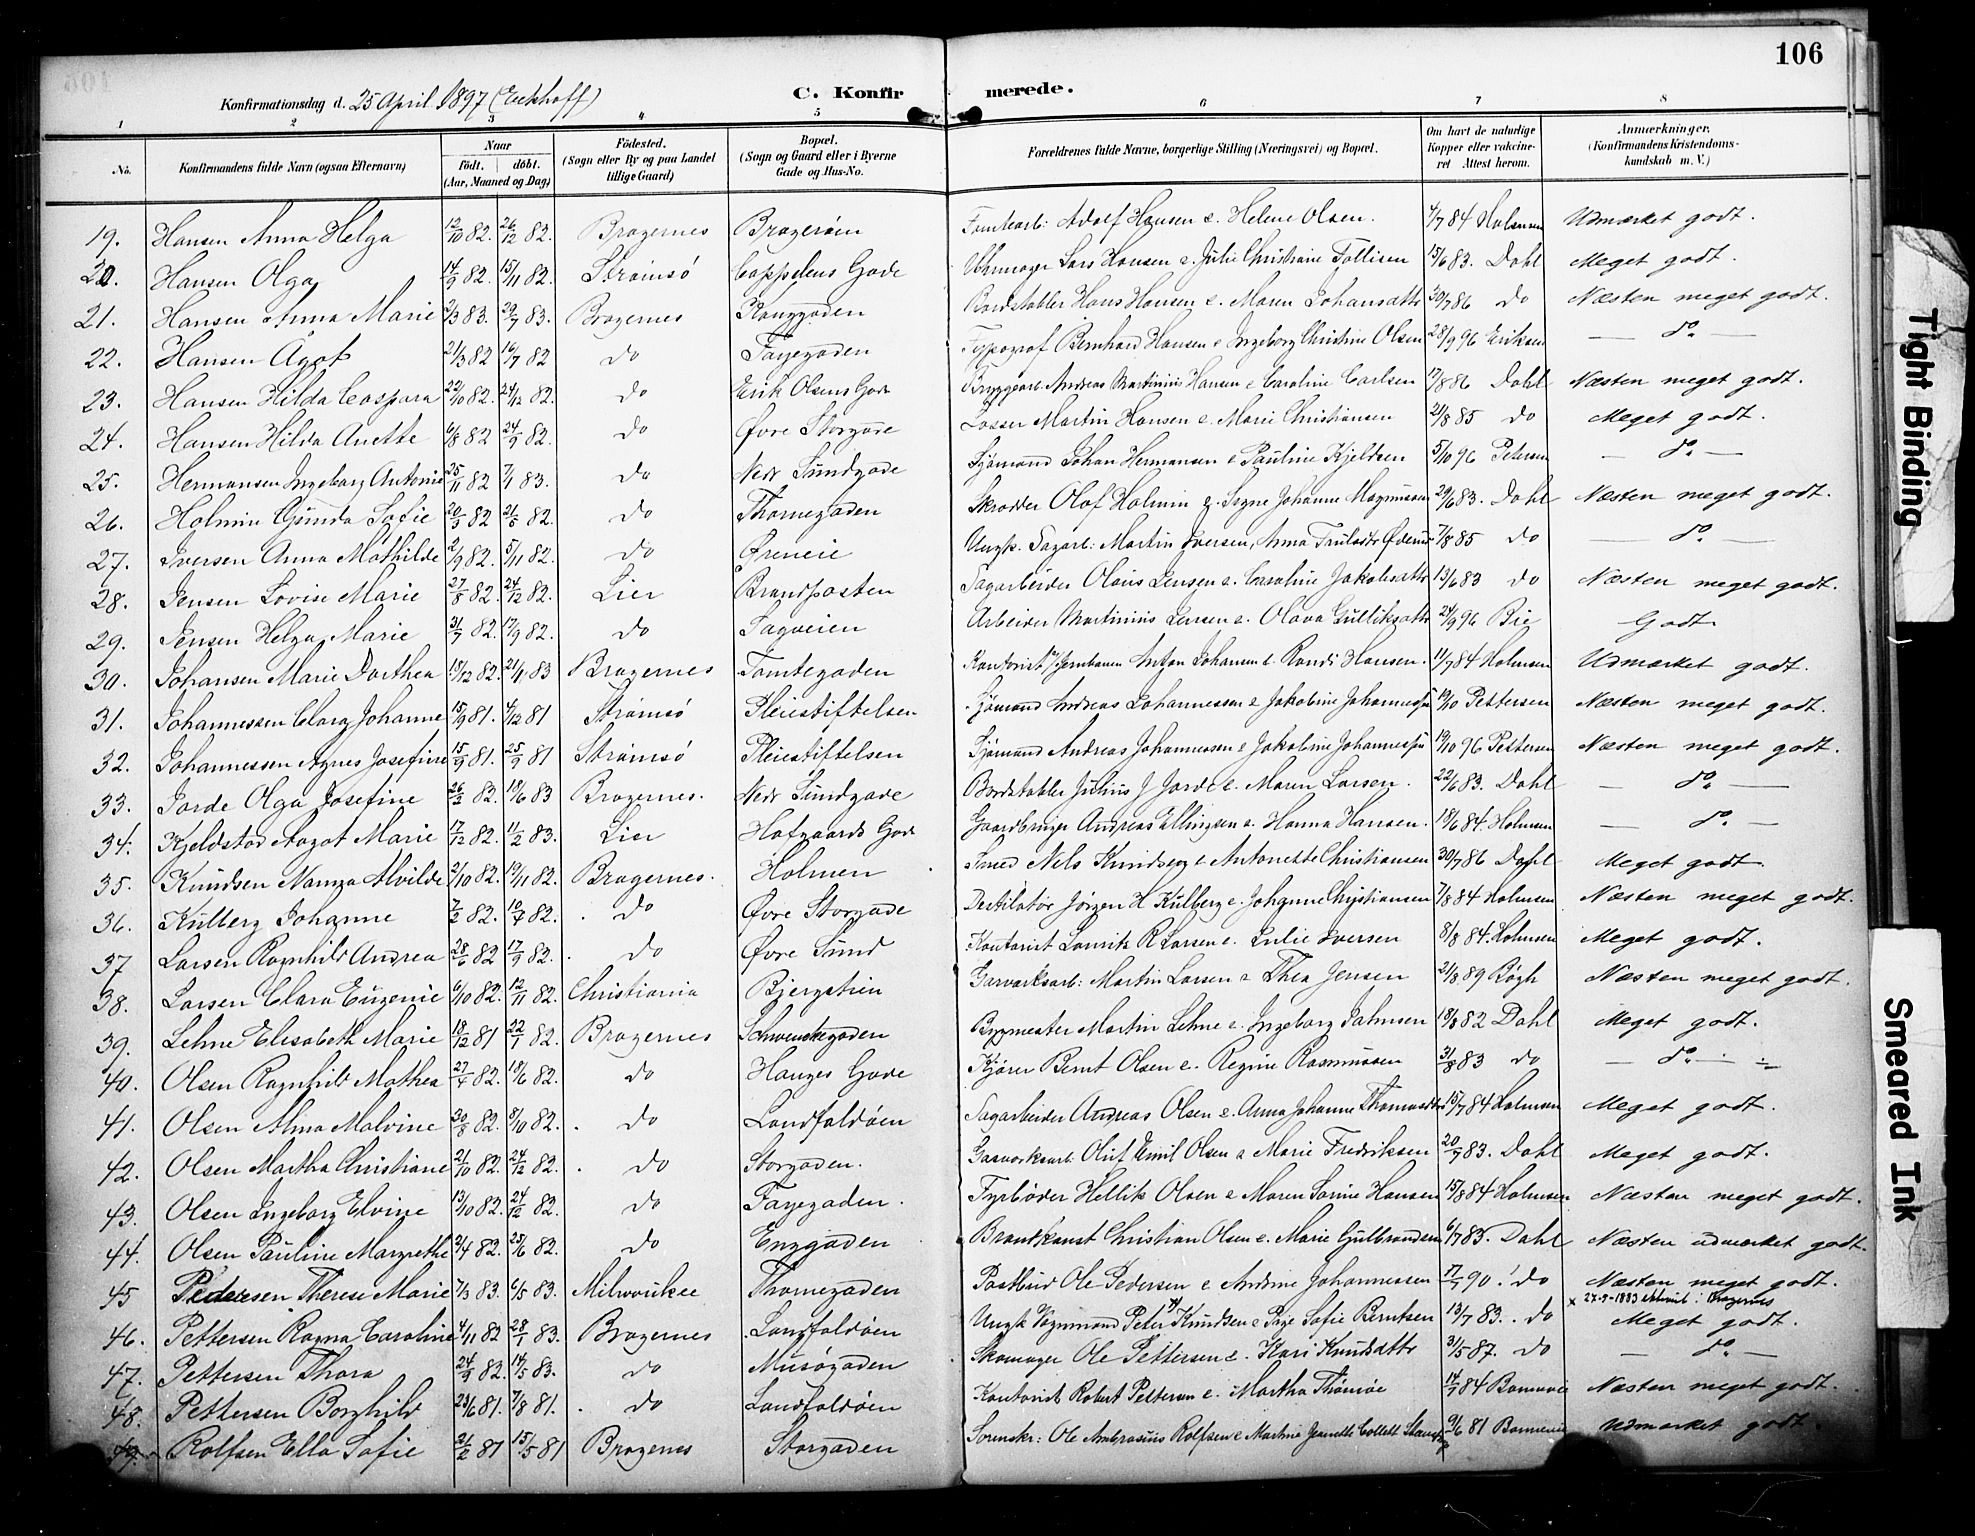 106
Konfirmationsdag d. 25 April 1897 (Eckhoff)
C. Konfirmerede.
1 2 3 4 5 6 7 8
No. Konfirmandens fulde Navn (ogsaa Efternavn) Naar født. døbt. (Aar, Maaned og Dag) Fødested. (Sogn eller By og paa Landet tillige Gaard) Bopæl. (Sogn og Gaard eller i Byerne Gade og Hus-No. Forældrenes fulde Navne, borgerlige Stilling (Næringsvei) og Bopæl. Om havt de naturlige Kopper eller vaccineret Attest herom. Anmærkninger. (Konfirmandens Kristendomskundskab m. V.)
19. Hansen Anna Helga 12/10 82. 26/12 82. Bragernes Bragerøen Tomtearb: Adolf Hansen e. Helene Olsen. 4/7 84 Holmsen Udmærket godt.
20. Hansen Olga 14/9 82. 15/11 82. Strømsö Cappelens Gade Uhrmager Lars Hansen e. Julie Christiane Tollisen 15/6 83. Dahl Meget godt.
21. Hansen Anna Marie 2/3 83. 29/7 83. Bragernes Konggaden Bordstabler Hans Hansen e. Maren Johansdtr 30/7 86 do Næsten meget godt.
22. Hansen Ågot 21/3 82 16/7 82 do Fayegaden Typograf Bernhard Hansen e Ingeborg Christine Olsen 28/9 96 Eriksen — do —
23. Hansen Hilda Caspara 22/10 82. 24/12 82. do Erik Olsens Gade Bryggearb. Andreas Martinius Hansen e Caroline Carlsen 17/8 86 Dahl Næsten meget godt.
24. Hansen Hilda Anette 6/8 82 24/9 82. do Øvre Storgade Losser Martin Hansen e. Marie Christiansen 21/8 85 do Meget godt.
25. Hermansen Ingeborg Antonie 25/11 82 7/1 83. do Nedr Sundgade Sjømand Johan Hermansen e Pauline Kjeldsen 5/10 96 Petersen — do —
26. Holmin Gunda Sofie 20/3 82 21/5 82. do Thornegaden Skrædder Olaf Holmin e. Signe Johanne Magnussen 29/6 83. Dahl Næsten meget godt.
27. Iversen Anna Mathilde 2/9 82. 5/11 82. do Øreneie Ungk. Sagarb: Martin Iversen, Anna Trulsdtr 7/8 85 do — do —
28. Jensen Lovise Marie 27/8 82. 24/12 82. Lier Brandposten Sagarbeider Olaus Jensen e. Caroline Jakobsdtr 13/6 83 do Næsten meget godt.
29. Jensen Helga Marie 31/7 82. 17/9 82. do Sagveien Arbeider Martinius Jensen e. Olava Gulliksdtr 24/9 96 Bie Godt
30. Johansen Marie Dorthea 18/12 82. 21/1 83 Bragernes Tomtegaden Kontorist v/ Jernbanen Anton Johansen e. Randi Hansen. 11/7 84 Holmsen Udmærket godt.
31. Johannessen Clara Johanne 15/9 81. 4/12 81 Strømsö Pleiestiftelsen Sjømand Andreas Johannessen e Jakobine Johannes 19/10 Pettersen Næsten meget godt.
32. Johannessen Agnes Josefine 15/9 81. 25/9 81 Strømsö Pleiestiftelsen Sjømand Andreas Johannessen e Jakobine Johannes 19/10 96 Pettersen Næsten meget godt.
33. Jorde Olga Josefine 26/2 82. 18/6 83 Bragernes. Nedr Sundgade Bordstabler Julius J Jorde e. Maren Larsen. 22/6 83. Dahl — do —
34. Kjeldstad Aagot Marie 17/12 82. 11/2 83. Lier Hofgaards Gade Gaardbruger Andreas Ellingsen e. Hanna Hansen. 18/6 84. Holmsen — do —
35. Knudsen Nanna Alvilde 2/10 82. 19/11 82. Bragernes. Holmen Smed Nels Knudsen e Antonette Christiansen 30/7 86 Dahl Meget godt
36. Kulberg Johanne 7/2 82. 10/7 82. do Øvre Storgade Destilatör Jörgen H Kulberg e. Johanne Christiansen 7/8 84 Holmsen Næsten meget godt.
37 Larsen Ragnhild Andrea 28/6 82 17/9 82. do Øvre Sund Kontorist Laurik R Larsen e. Julie Iversen 8/8 84. Holmsen Meget godt.
38. Larsen Clara Eugenie 6/10 82. 12/11 82. Christiania Bjergstien Garvarksarb: Martin Larsen e Thea Jensen 21/8 89 Bøgh Næsten meget godt.
39. Lehne Elisabeth Marie 18/12 81 22/1 82. Bragernes Schwenckegaden Bygmester Martin Lehne e. Ingeborg Jahnsen 18/8 82 Dahl Meget godt.
40. Olsen Ragnhild Mathea 27/4 82. 18/6 82. do Hauges Gade Kjører Bernt Olsen e. Regine Rasmussen 31/8 83 do — do —
41. Olsen Alma Malvine 30/8 82. 8/10 82. do Landfaldöen Sagarbeider Andreas Olsen e. Anna Johanne Thomasdtr 15/7 84 Holmsen Meget godt.
42. Olsen Martha Christiane 21/10 82. 24/12 82. do Storgaden. Gasværksarb. Oluf Emil Olsen e Marie Fredriksen 20/7 83. Dahl Meget godt.
43. Olsen Ingeborg Elvine 13/10 82. 24/12 82. do Fayegaden. Fyrbøder Hellik Olsen e Maren Sorine Hansen 15/8 84 Holmsen Næsten meget godt.
44. Olsen Pauline Margrethe 2/4 82. 25/6 82. do Enggaden Brandkonst Christian Olsen e. Marie Gulbrandsen 6/7 83. Dahl Næsten udmærket godt.
45 Pedersen Therese Marie 7/3 83. 6/5 83. Milwoukee Thornegaden Postbud Ole Pedersen e Andrine Johannessen 17/7 90. do Næsten meget godt.
x 27-5-1883 i Bragernes
46. Pettersen Ragna Caroline 4/11 82 28/1 83. Bragernes Landfaldöen Ungk Vognmand Peter Knudsen e Pige Sofie Berntsen 13/7 83. do Meget godt.
47. Pettersen Thora 24/9 82. 14/5 83. do Musøgaden Skomager Ole Pettersen e. Kari Knudsdtr 31/5 87. do — do —
48. Pettersen Borghild 23/6 81. 7/8 81. do Landfaldöen Kontorist Robert Pettersen e. Martha 14/7 84 Næsten meget godt.
49. Rolfsen Ella Sofie 21/2 81 15/5 81 Bragernes Storgaden Sorenskr: Ole Ambrosius Rolfsen e Martine Jeanette Collett 9/6 81 Udmærket godt.
Tight Binding
Smeared Ink